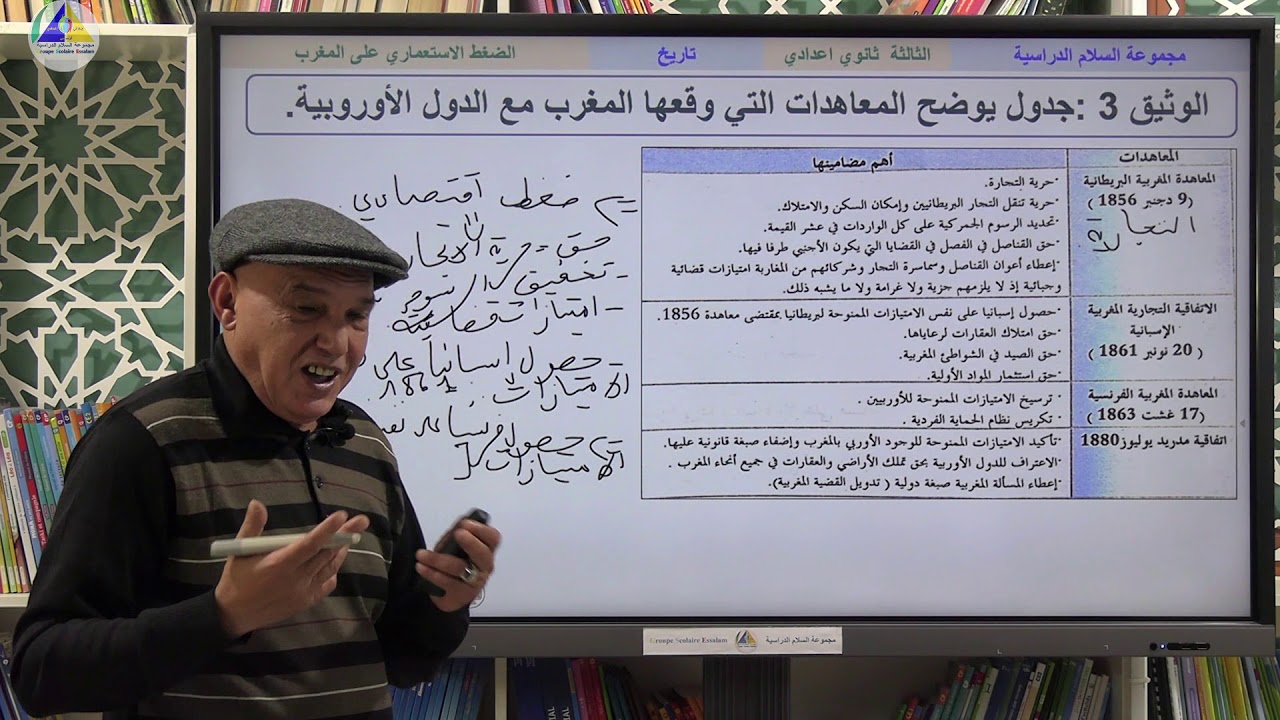 مجموعة السلام الدراسية
Groupe Scolaire Essalam
مجموعة السلام الدراسية
الثالثة ثانوي اعدادي
تاريخ
الضغط الاستعماري على المغرب
الوثيق 3 :جدول يوضح المعاهدات التي وقعها المغرب مع الدول الأوروبية.
المعاهدات
أهم مضامينها
المعاهدة المغربية البريطانية
(9 دجنبر 1856 )
·حرية التجارة.
·حرية تنقل التجار البريطانيين وإمكان السكن والامتلاك.
·تحديد الرسوم الجمركية على كل الواردات في عشر القيمة.
·حق القناصل في الفصل في القضايا التي يكون الأجنبي طرفا فيها.
·إعطاء أعوان القناصل وسماسرة التجار وشركائهم من المغاربة امتيازات قضائية
وجبائية إذ لا يلزمهم جزية ولا غرامة ولا ما يشبه ذلك.
الاتفاقية التجارية المغربية
الإسبانية
( 20 نونبر 1861 )
·حصول إسبانيا على نفس الامتيازات الممنوحة لبريطانيا بمقتضى معاهدة 1856.
·حق امتلاك العقارات لرعاياها.
·حق الصيد في الشواطئ المغربية.
·حق استثمار المواد الأولية.
المعاهدة المغربية الفرنسية
(17 غشت 1863 )
· ترسيخ الامتيازات الممنوحة للأوربيين .
· تكريس نظام الحماية الفردية .
اتفاقية مدريد يوليوز1880
·تأكيد الامتيازات الممنوحة للوجود الأوربي بالمغرب وإضفاء صبغة قانونية عليها.
·الاعتراف للدول الأوربية بحق تملك الأراضي والعقارات في جميع أنحاء المغرب .
·إعطاء المسألة المغربية صبغة دولية ( تدويل القضية المغربية).
ضغط اقتصادي
حق = حرية الاتجار
- تخفيض الرسوم
- امتيازات قضائية
- حصول اسبانيا على
الامتيازات 1861
حصول فرنسا على نفس
الامتيازات
Groupe Scolaire Essalam
مجموعة السلام الدراسية